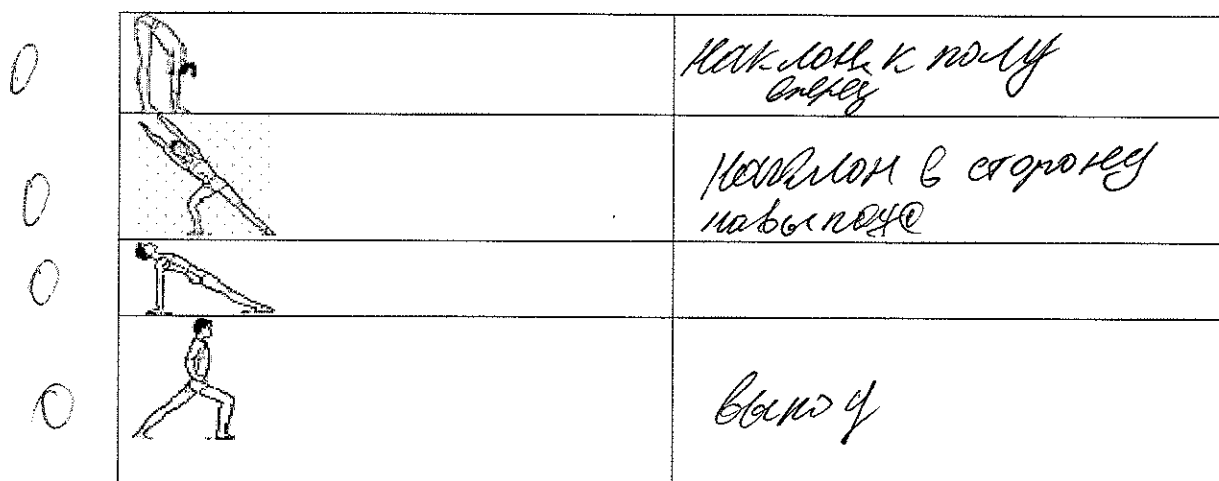 0
наклон к полу
вперед
0
наклон в сторону
на выпаде
0
0
выпад